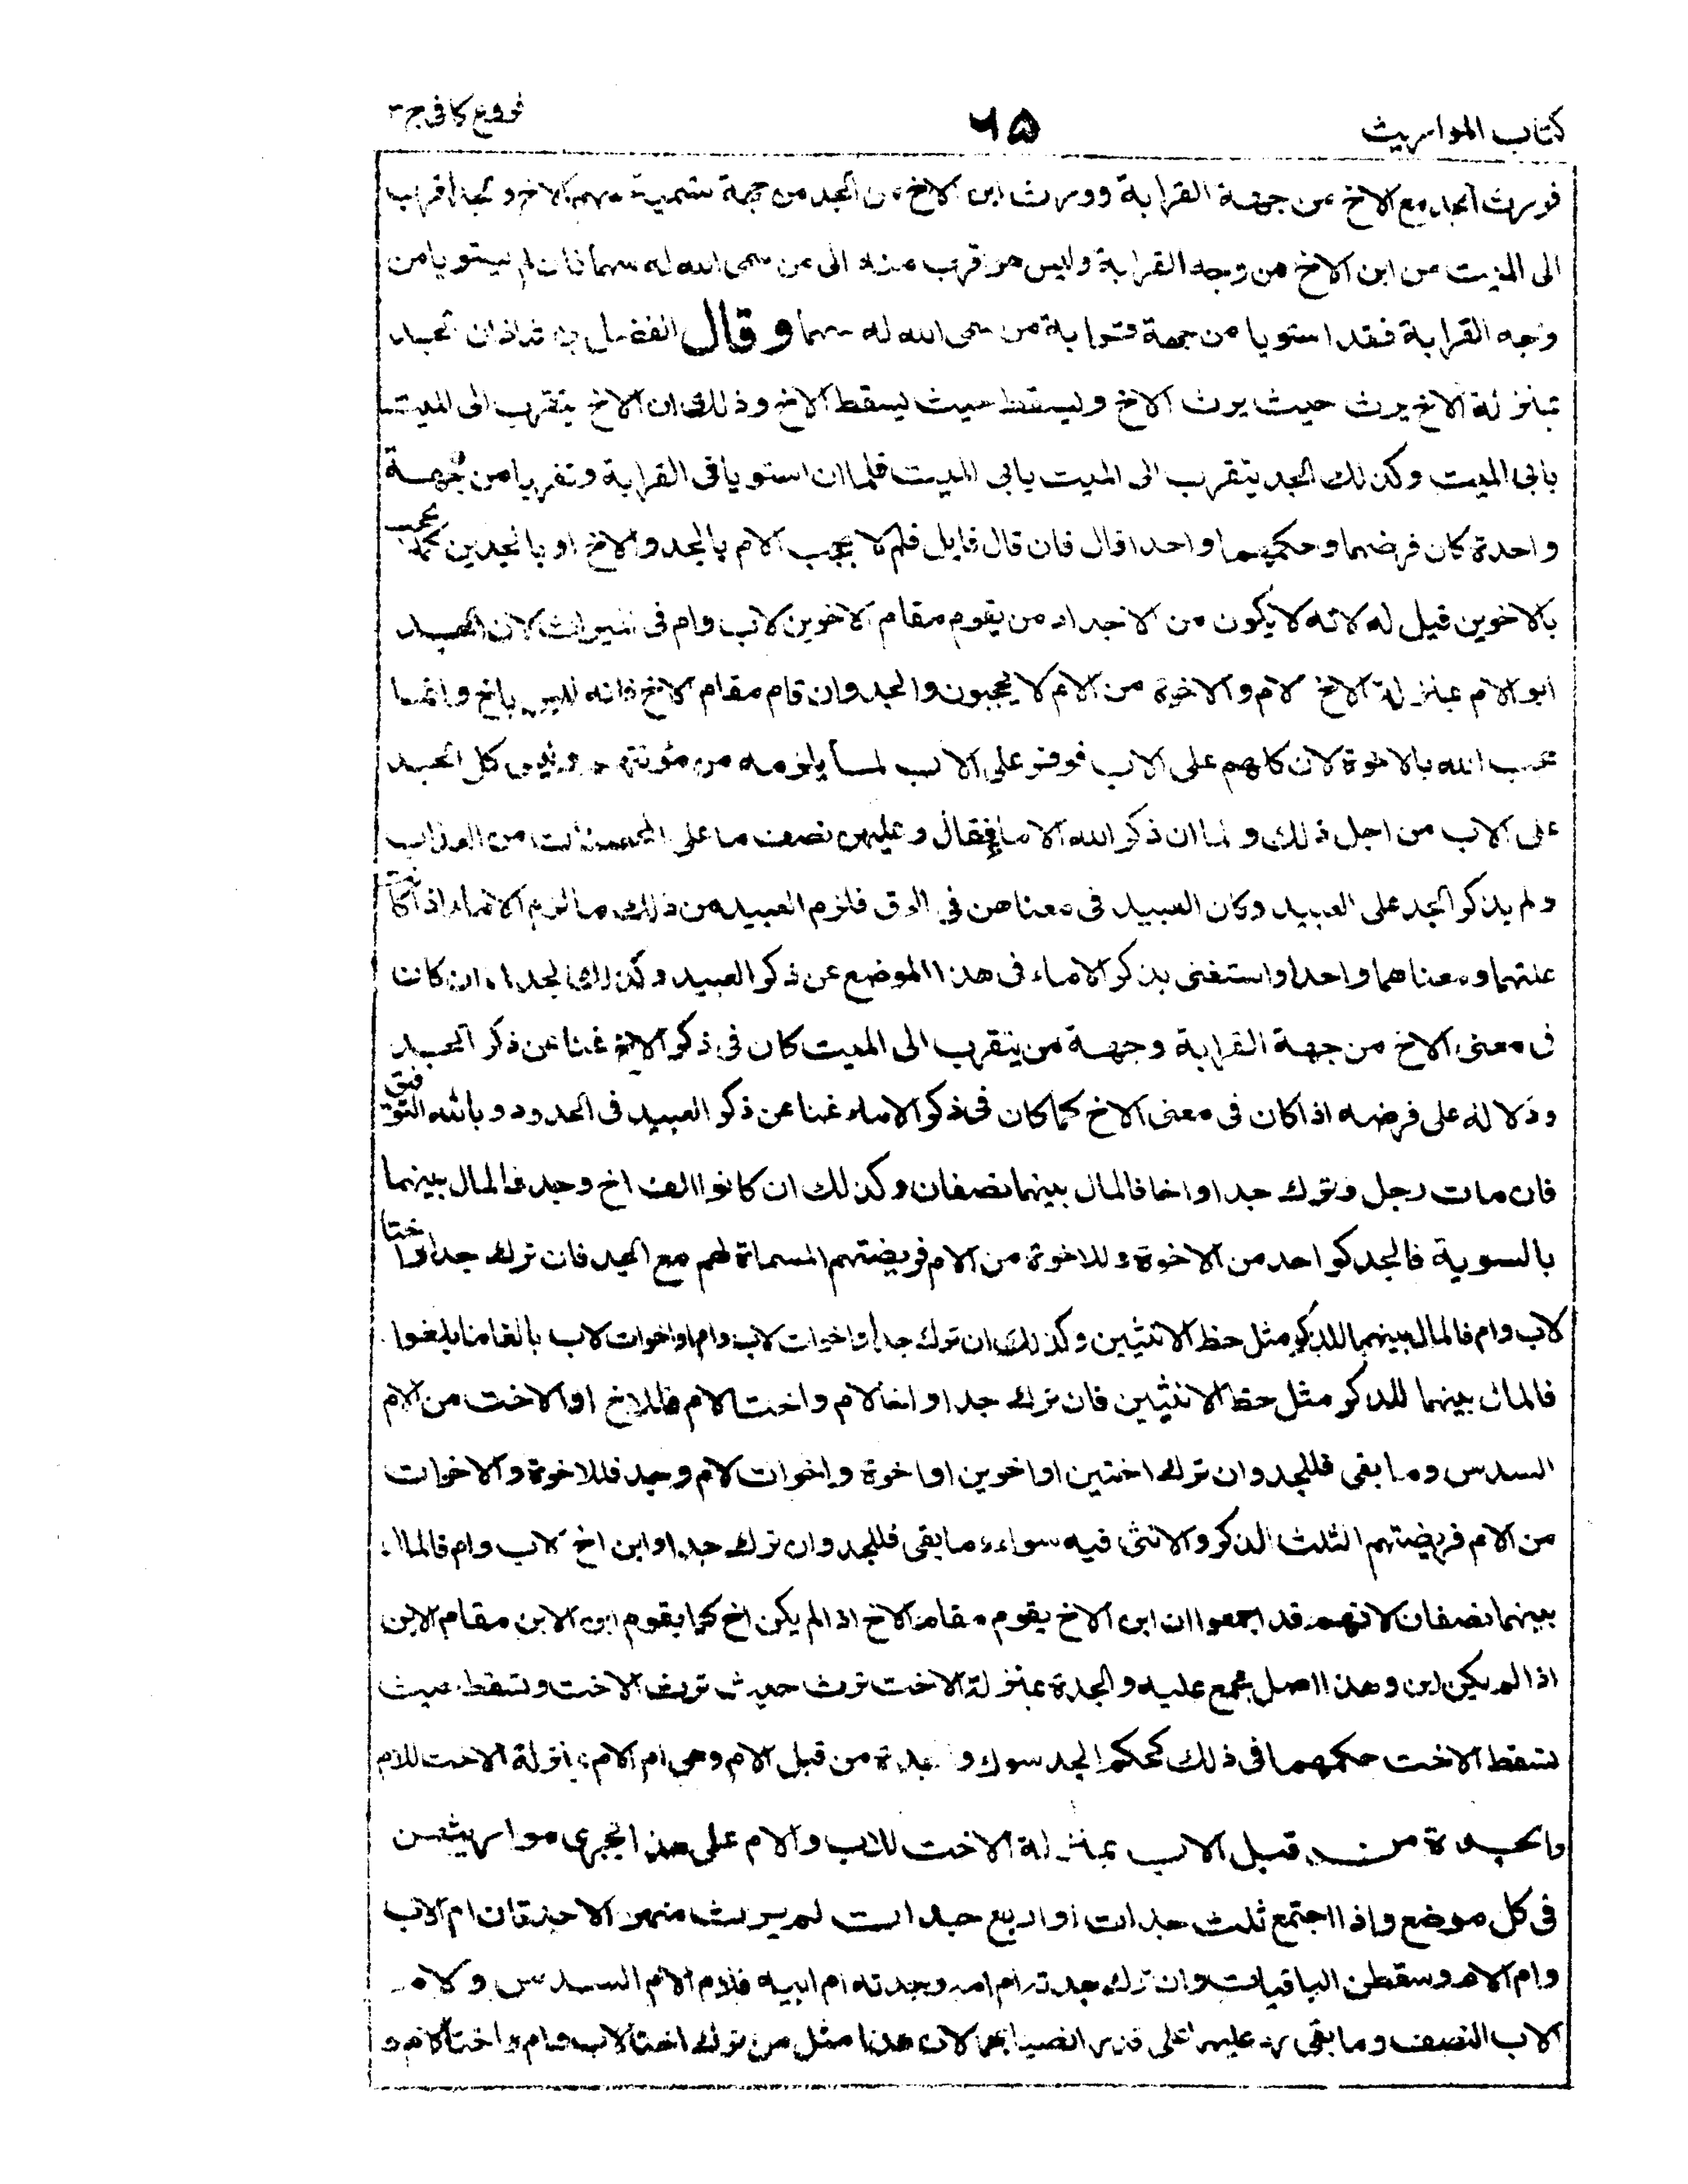 كتاب المواريث ٦٥ فروع كافى ج٣
فورث الجد مع الاخ من جهة القرابة وورث ابن الاخ من الجد من جهة تسمية سهم الاخ و الجد اقرب
الى الميت من ابن الاخ من وجه القرابة وليس هو اقرب منه الى من سمى الله له سهما فان لم يستويا من
وجه القرابة فقد استويا من جهة قرابة من سمى الله له سهما وقال الفضل بن شاذان الجد
بمنزلة الاخ يرث حيث يرث الاخ ويسقط حيث يسقط الاخ وذلك ان الاخ يتقرب الى الميت
بابى الميت وكذلك الجد يتقرب الى الميت بابى الميت فلما ان استويا فى القرابة وتقربا من جهة
واحدة كان فرضهما وحكمهما واحدا قال فان قال قايل فلم لا يحجب الام بالجد والاخ او بالجدين كما يحجب
بالاخوين قيل له لانه لا يكون من الاجداد من يقوم مقام الاخوين لاب وام فى الميراث لان الجد
ابو الام بمنزلة الاخ لام والاخوة من الام لا يحجبون والجد وان قام مقام الاخ فانه ليس باخ وانما
حجب الله بالاخوة لان كلهم على الاب فوفر على الاب لما يلزمه من مؤنتهم وليس كل الجد
على الاب من اجل ذلك ولما ان ذكر الله الاماء فقال وعليهن نصف ما على المحصنات من العذاب
ولم يذكر الحد على العبيد وكان العبيد فى معناهن فى الرق فلزم العبيد من ذلك ما لزم الاماء اذ كانت
علتهما ومعناهما واحدا واستغنى بذكر الاماء فى هذا الموضع عن ذكر العبيد وكذلك الجد ان كان
فى معنى الاخ من جهة القرابة وجهة من يتقرب الى الميت كان فى ذكر الاخ غنا عن ذكر الجد
ودلالة على فرضه اذا كان فى معنى الاخ كما كان فى ذكر الاماء غنا عن ذكر العبيد فى الحدود وبالله التوفيق
فان مات رجل وترك جدا واخا فالمال بينهما نصفان وكذلك ان كانوا الف اخ وجد فالمال بينهما
بالسوية فالجد كواحد من الاخوة وللاخوة من الام فريضتهم المسماة لهم مع الجد فان ترك جدا واختا
لاب وام فالمال بينهما للذكر مثل حظ الانثيين وكذلك ان ترك جدا واخوات لاب وام او اخوات لاب بالغا ما بلغوا
فالمال بينهما للذكر مثل حظ الانثيين فان ترك جدا و اخا لام واختا لام فللاخ او الاخت من الام
السدس وما بقى فللجد وان ترك اختين او اخوين او اخوة و اخوات لام وجد فللاخوة والاخوات
من الام فريضتهم الثلث الذكر والانثى فيه سواء وما بقى فللجد وان ترك جدا وابن اخ لاب وام فالمال
بينهما نصفان لانهم قد اجمعوا ان ابن الاخ يقوم مقام الاخ اذا لم يكن اخ كما يقوم ابن الابن مقام الابن
اذا لم يكن ابن وهذا اصل مجمع عليه والجدة بمنزلة الاخت ترث حيث ترث الاخت وتسقط حيث
تسقط الاخت حكمهما فى ذلك كحكم الجد سواء والجدة من قبل الام وهى ام الام بمنزلة الاخت للام
والجدة من قبل الاب بمنزلة الاخت للاب والام على هذا يجرى مواريثهن
فى كل موضع واذا اجتمع ثلث جدات او اربع جدات لم يرث منهن الا جدتان ام الاب
وام الام وسقطن الباقيات وان ترك جدته ام امه وجدته ام ابيه فلام الام السدس ولام
الاب النصف وما بقى رد عليهما على قدر انصبائهما لان هذا مثل من ترك اختا لاب وام واختا لام و